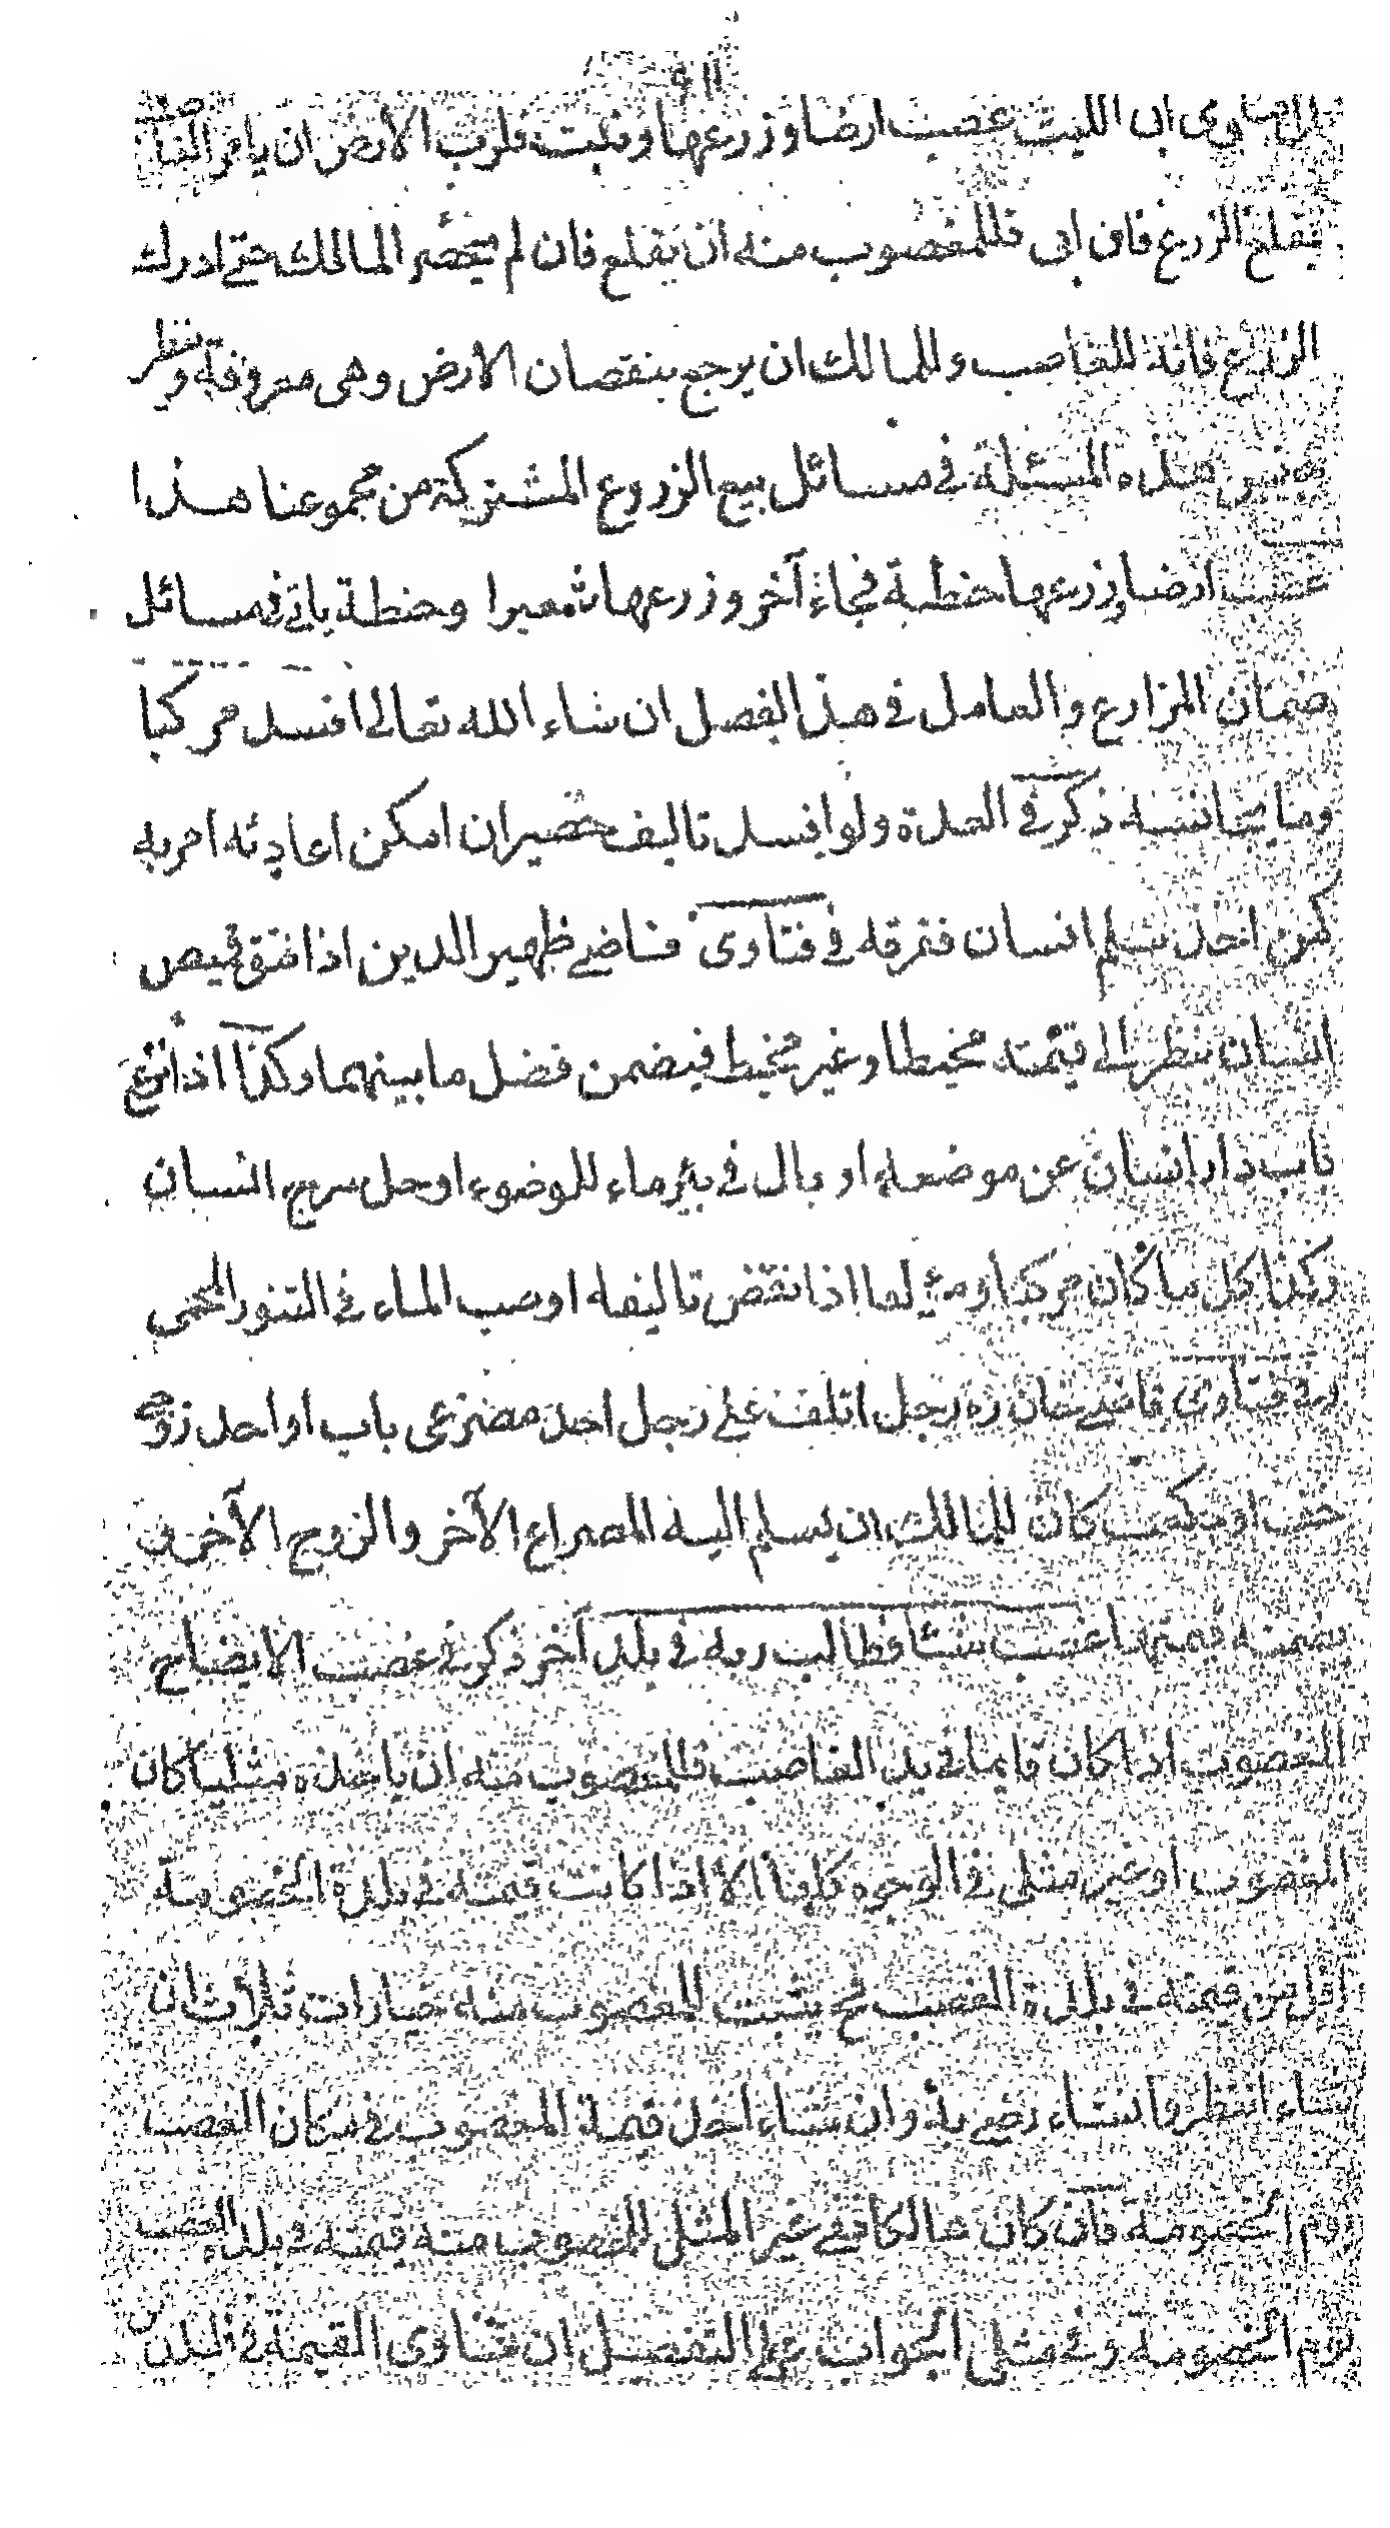 فتاوى ابى الليث غصب ارضا وزرعها ونبتت فلرب الارض ان يامر الغاصب
بقلع الزرع فان ابى فللمغصوب منه ان يقلع فان لم يحضر المالك حتى ادرك
الزرع فانه للغاصب وللمالك ان يرجع بنقصان الارض وهى معروفة وينظر
هذه المسئلة فى مسائل بيع الزروع المشتركة من مجموعنا هذا
غصب ارضا وزرعها حنطة فجاء آخر وزرعها شعيرا وحنطة ياتى فى مسائل
ضمان المزارع والعامل فى هذا الفصل ان شاء الله تعالى افسد مركبا
وما يجانسه ذكر فى العدة ولو افسد تاليف حصير ان امكن اعادته امر به
كمن اخذ سلم انسان ففرقه فى فتاوى قاضى ظهير الدين اذا فتق قميص
انسان ينظر الى قيمته مخيطا وغير مخيط فيضمن فضل ما بينهما وكذا اذا نزع
باب دار انسان عن موضعه او بال فى بئر ماء للوضوء او حل سرج انسان
وكذا كل ما كان مركبا ومؤلفا اذا نقض تاليفه او صب الماء فى التنور المحمى
وفى فتاوى قاضى خان ره رجل اتلف على رجل احد مصرعى باب او احد زوجى
خف او مكعب كان للمالك ان يسلم اليه المصراع الآخر والزوج الآخر و
يضمنه قيمتهما غصب شيئا فطالب ربه فى بلد آخر ذكر فى غصب الايضاح
المغصوب اذا كان قايما فى يد الغاصب فللمغصوب منه ان ياخذه مثليا كان
المغصوب او غير مثلى فى الوجوه كلها الا اذا كانت قيمته فى بلدة الخصومة
اقل من قيمته فى بلدة الغصب فح يثبت للمغصوب منه خيارات ثلاث ان
شاء انتظر وان شاء رضى به وان شاء اخذ قيمة المغصوب فى مكان الغصب
يوم الخصومة فان كان هالكا ففى غير المثلى للمغصوب منه قيمته فى بلد الغصب
يوم الخصومة وفى مثلى الجواب على التفصيل ان تساوى القيمة فى البلدين